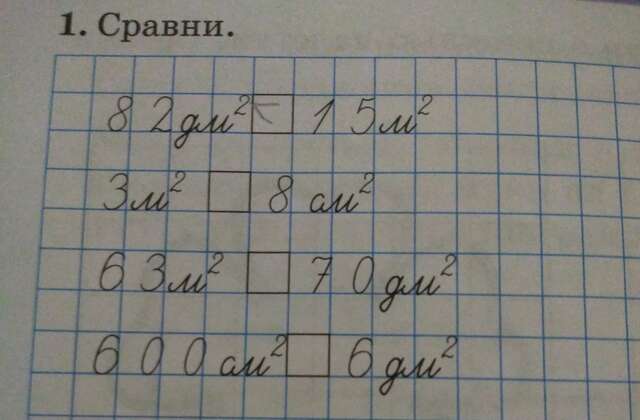 1. Сравни.
82дм² < □ 15м²
3м² □ 8 см²
63м² □ 70дм²
600см² □ 6дм²